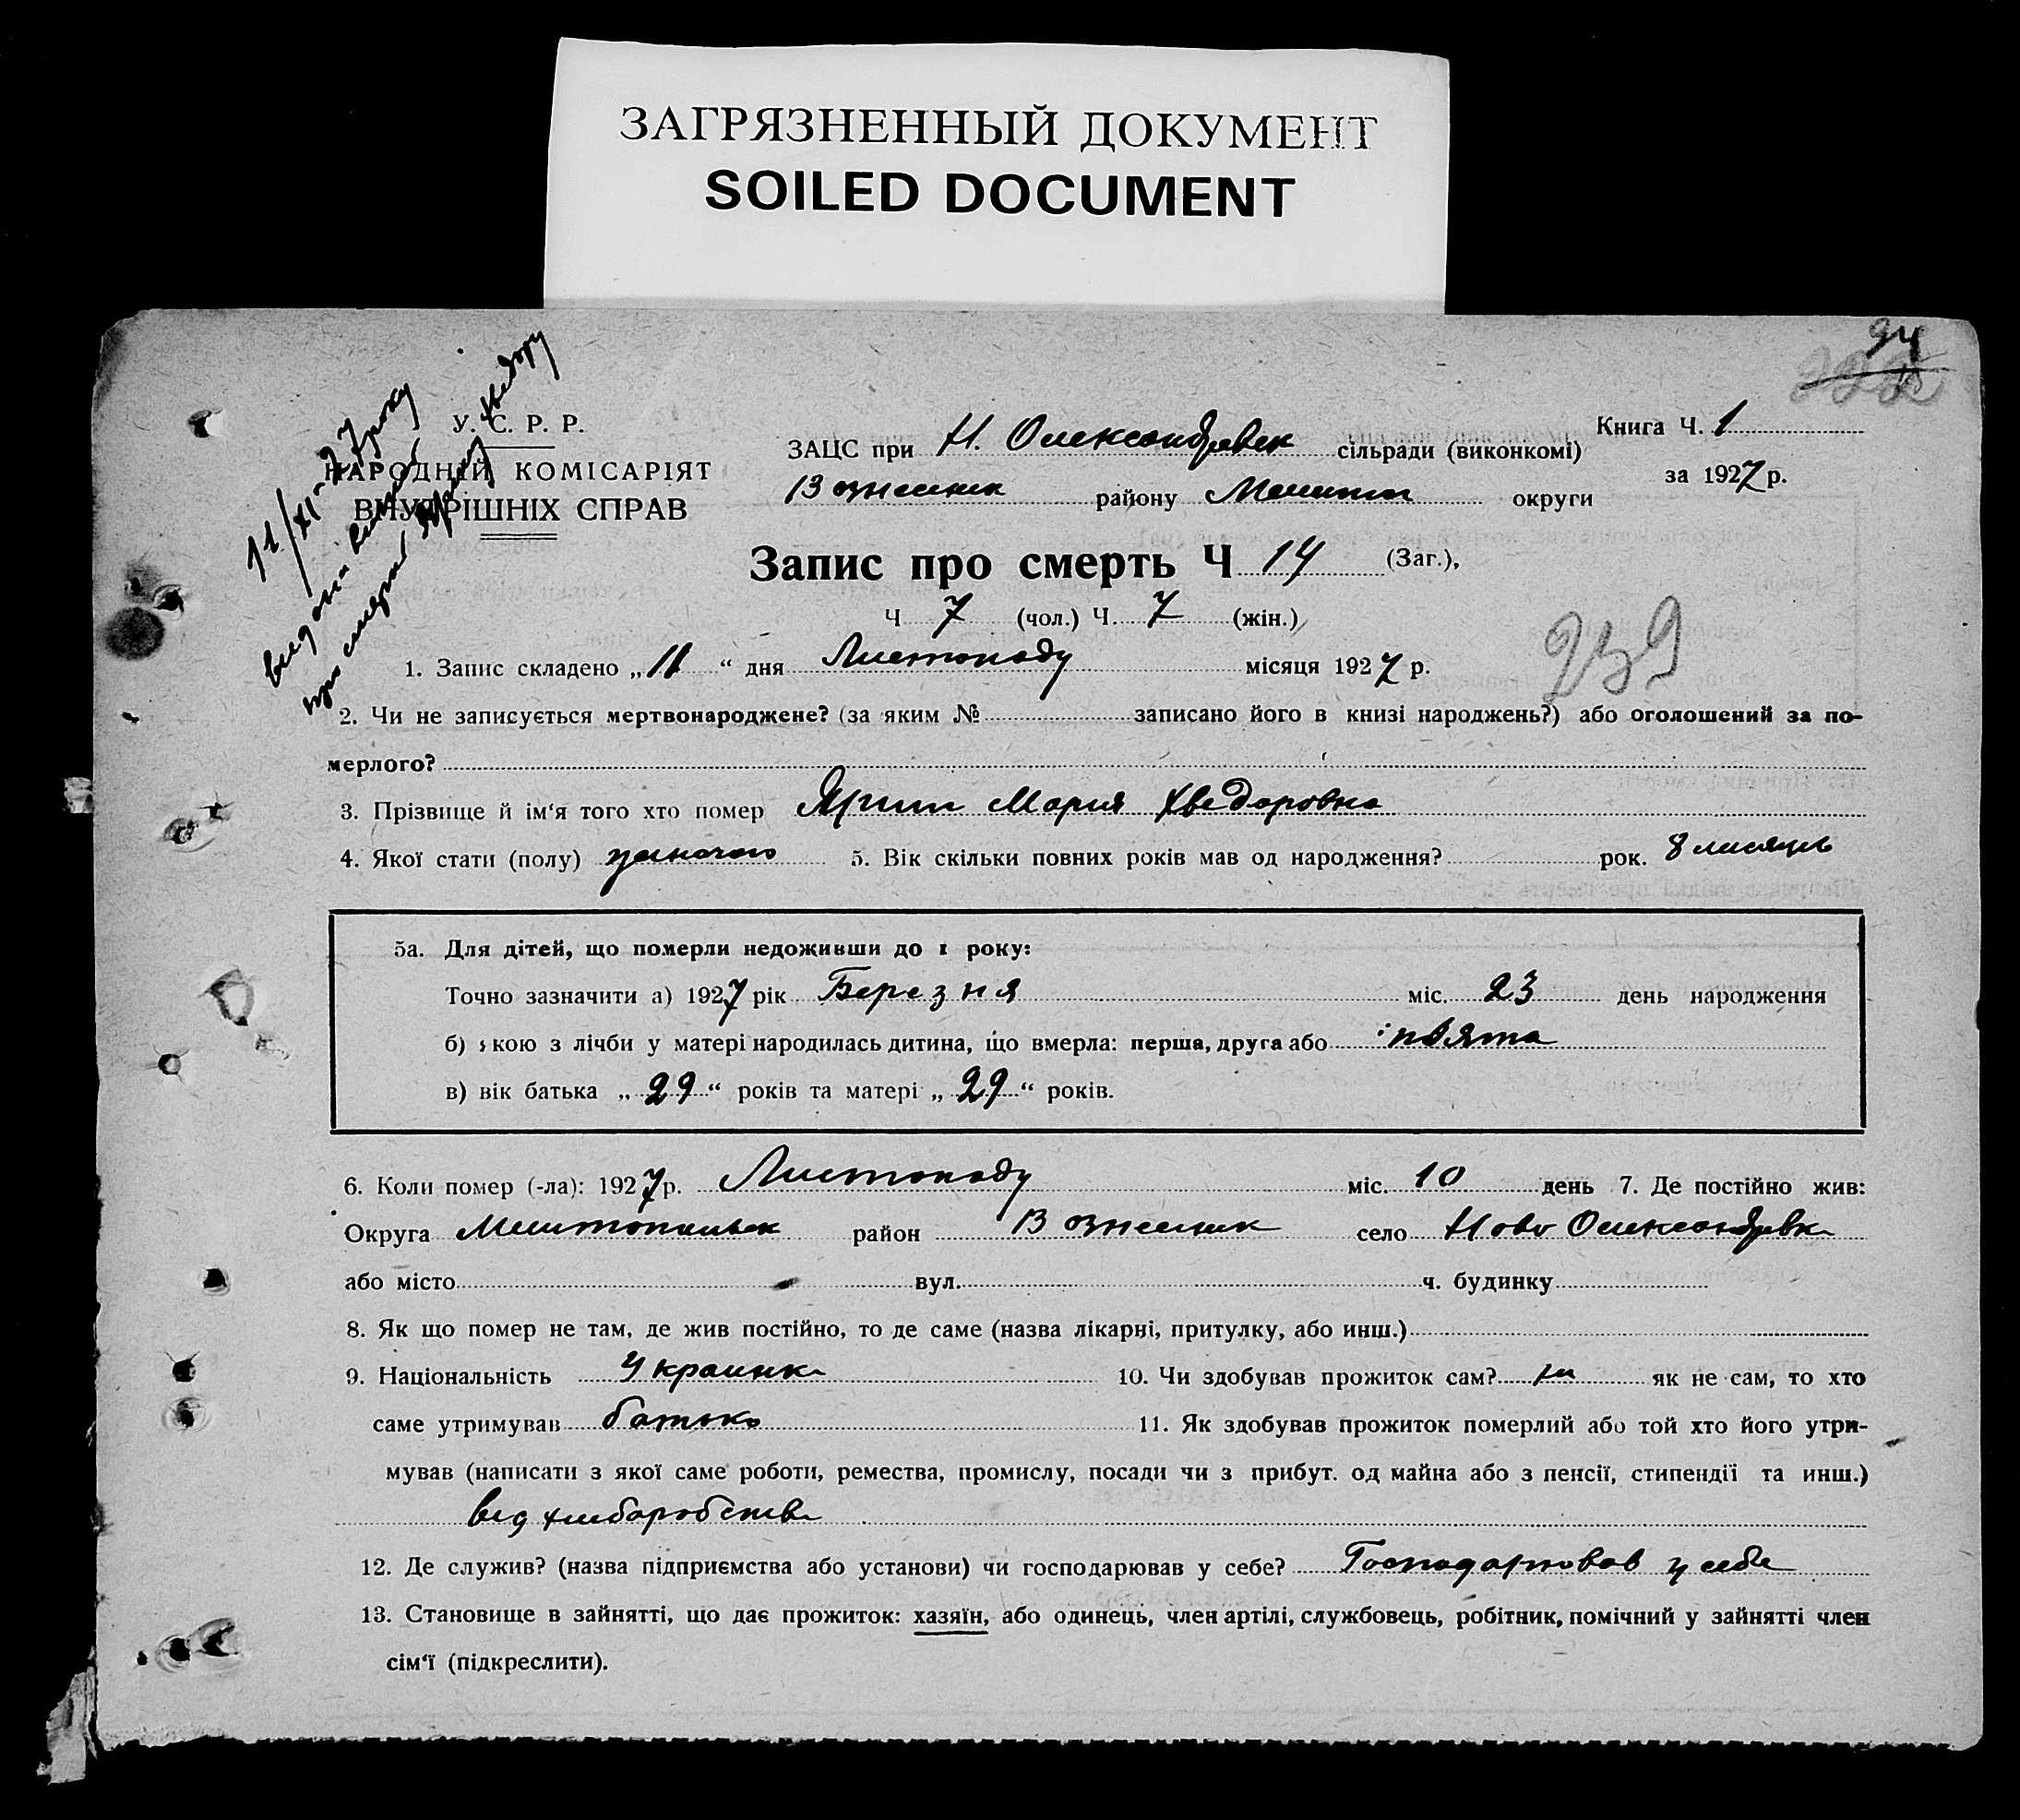 ЗАГРЯЗНЕННЫЙ ДОКУМЕНТ
SOILED DOCUMENT
94
11/XI-27 року
видана
про смерть Хведору
У. С. Р. Р.
НАРОДНІЙ КОМІСАРІЯТ
ВНУТРІШНІХ СПРАВ
Книга Ч. 1
за 1927 р.
ЗАЦС при Н. Олександравск сільради (виконкомі)
Вознесенск району Мелитоп округи
Запис про смерть Ч 14 (Заг.),
Ч 7 (чол.) Ч. 7 (жін.)
239
1. Запис складено „11“ дня Листопаду місяця 1927 р.
2. Чи не записується мертвонароджене? (за яким № записано його в книзі народжень?) або оголошений за по-
мерлого?
3. Прізвище й ім‘я того хто помер Мария Хведоровна
4. Якої стати (полу) жиночого 5. Вік скільки повних років мав од народження? рок. 8 мисяців
5а. Для дітей, що померли недоживши до 1 року:
Точно зазначити а) 1927 рік Березня міс. 23 день народження
б) кою з лічби у матері народилась дитина, що вмерла: перша, друга або пьята
в) вік батька „29“ років та матері „29“ років.
6. Коли помер (-ла): 1927 р. Листопаду міс. 10 день 7. Де постійно жив:
Округа Мелитопильск район Вознесенск село Ново Олександравка
або місто вул. ч. будинку
8. Як що помер не там, де жив постійно, то де саме (назва лікарні, притулку, або инш.)
9. Національність Украинка 10. Чи здобував прожиток сам? ни як не сам, то хто
саме утримував батько 11. Як здобував прожиток померлий або той хто його утри-
мував (написати з якої саме роботи, ремества, промислу, посади чи з прибут. од майна або з пенсії, стипендії та инш.)
вид хлибаробства
12. Де служив? (назва підприємства або установи) чи господарював у себе? Господарював у себе
13. Становище в зайнятті, що дає прожиток: хазяїн, або одинець, член артілі, службовець, робітник, помічний у зайнятті член
сім‘ї (підкреслити).